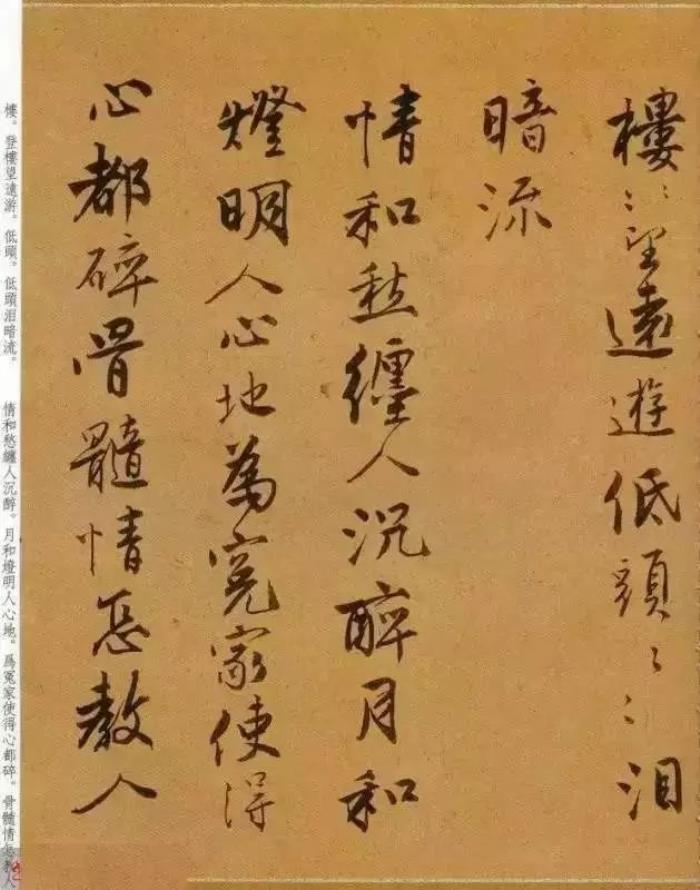 樓〻〻望遠遊低頭〻〻泪
暗流
情和愁纏人沉醉月和
燈明人心地為冤家使得
心都碎骨髓情怎教人
樓。登樓望遠游。低頭。低頭泪暗流。 情和愁纏人沉醉。月和燈明人心地。爲冤家使得心都碎。骨髓情怎教人